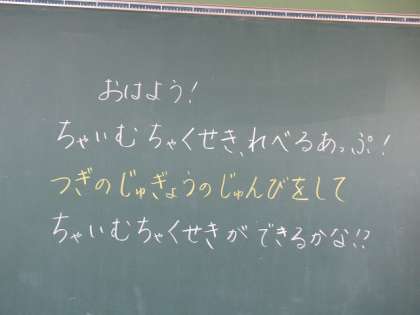 おはよう！
ちゃいむちゃくせき、れべるあっぷ！
つぎのじゅぎょうのじゅんびをして
ちゃいむちゃくせきができるかな！？